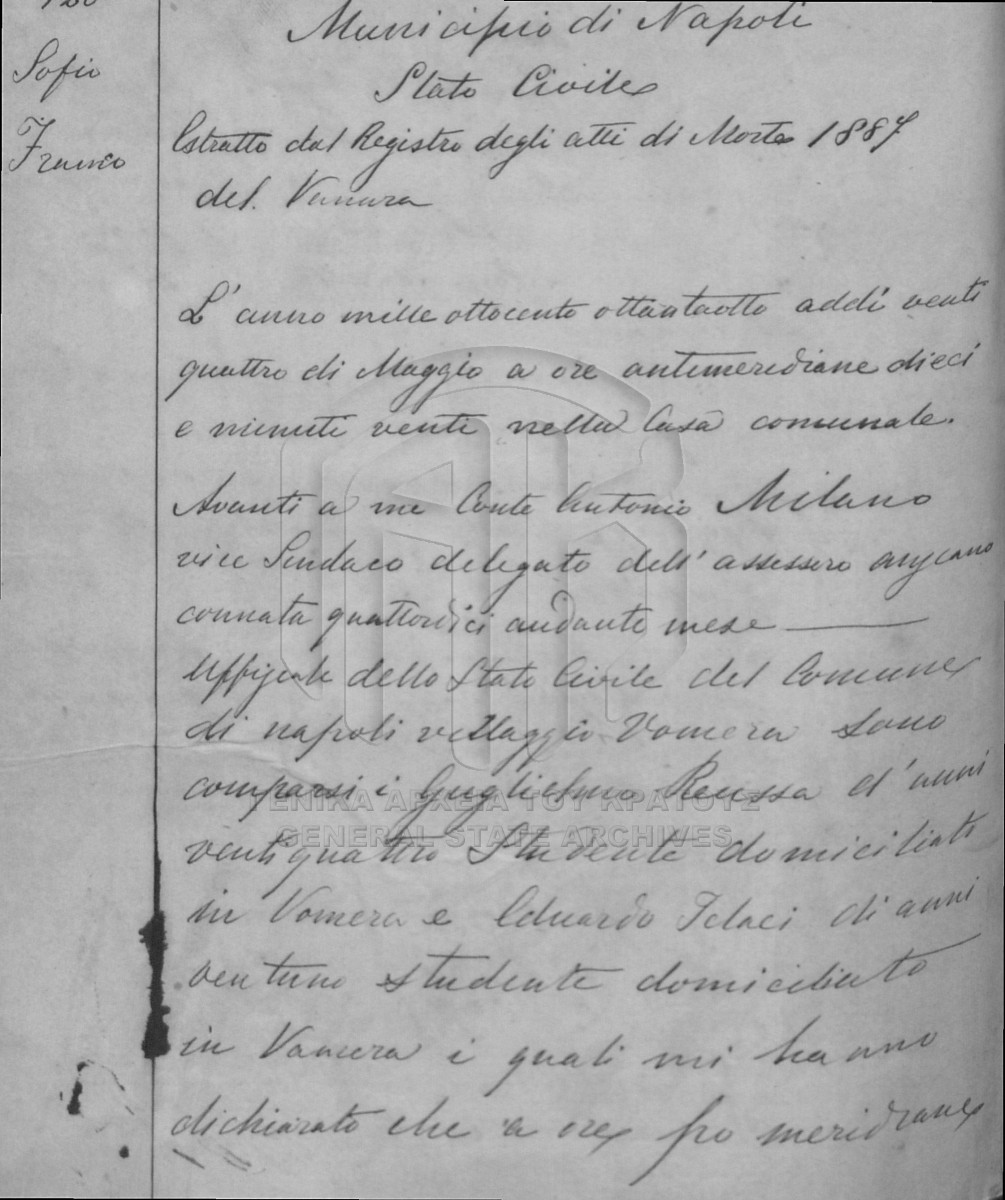 Sofio
Franco
Municipio di Napoli
Stato Civile
Estratto dal Registro degli atti di Morte 1887
del. Vumura
L'anno mille ottocento ottantaotto addì venti
quattro di Maggio a ore antimeridiane dieci
e minuti venti nella Casa comunale.
Avanti a me Conte Antonio Milano
vice Sindaco delegato dell'assessero
connata quattordici andante mese
Uffizente dello Stato Civile del Comune
di napoli villaggio Vomera sono
comparsi i Guglielmo Reussa d'anni
ventiquattro Studente domiciliato
in Vomera e Eduardo Telaci di anni
ventuno studente domiciliato
in Vamera i quali mi hanno
dichiarato che a ore po meridiane
ΓΕΝΙΚΑ ΑΡΧΕΙΑ ΤΟΥ ΚΡΑΤΟΥΣ
GENERAL STATE ARCHIVES